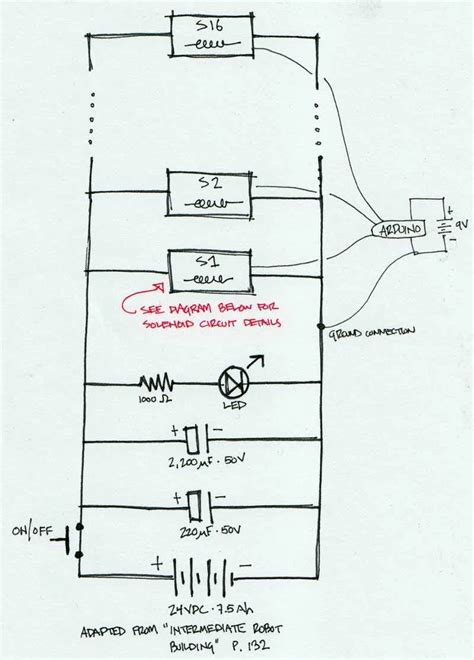 S16
S2
+
ARDUINO
9V
-
S1
SEE DIAGRAM BELOW FOR
SOLENOID CIRCUIT DETAILS
GROUND CONNECTION
1000 Ω
LED
+ -
2,200µF · 50V
+ -
220µF · 50V
ON/OFF
+ -
24VDC · 7.5Ah
ADAPTED FROM "INTERMEDIATE ROBOT
BUILDING" P. 132